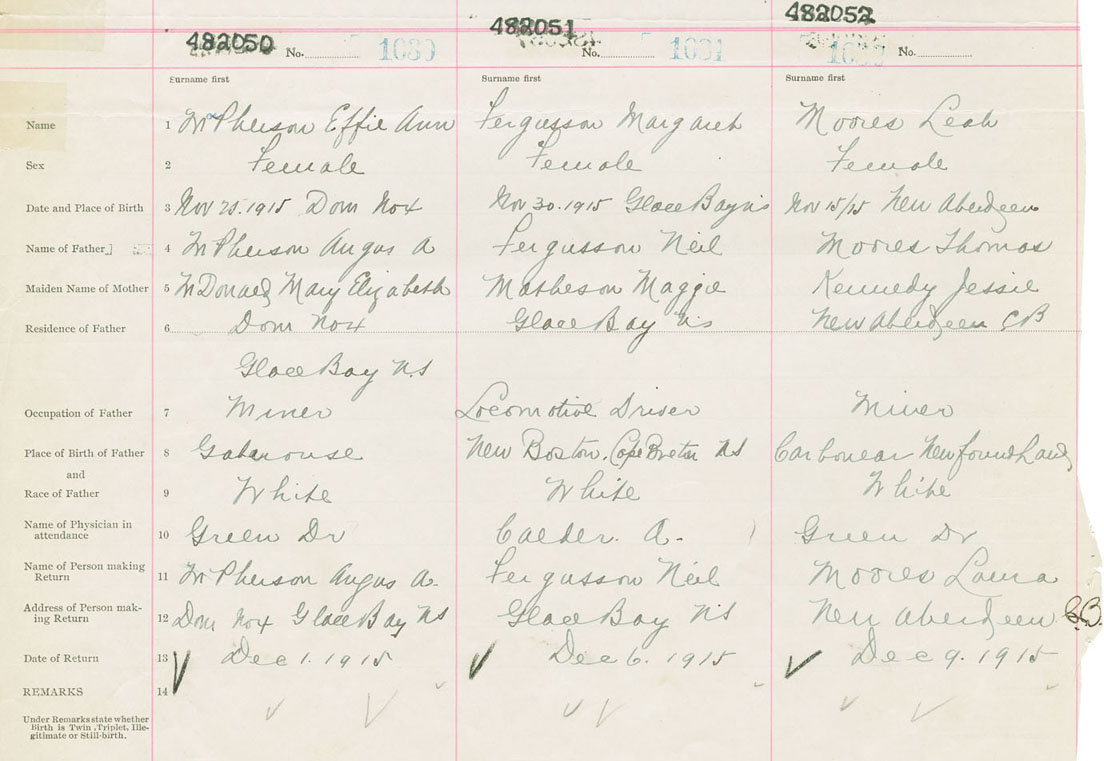 482050 482051 482052
No. 1030 No. 1031 No.
Surname first Surname first Surname first
Name 1 McPherson Effie Ann Fergusson Margaret Moores Leah
Sex 2 Female Female Female
Date and Place of Birth 3 Nov 25.1915 Dom No4 Nov 30.1915 Glace Bay NS Nov 15/15 New Aberdeen
Name of Father 4 McPherson Angus A Fergusson Neil Moores Thomas
Maiden Name of Mother 5 McDonald Mary Elizabeth Matheson Maggie Kennedy Jessie
Residence of Father 6 Dom No4 Glace Bay NS New Aberdeen CB
Glace Bay N.S
Occupation of Father 7 Miner Locomotive Driver Miner
Place of Birth of Father 8 Gabarouse New Boston, Cape Breton NS Carbonear Newfoundland
and
Race of Father 9 White White White
Name of Physician in
attendance 10 Green Dr Calder. A. Green Dr
Name of Person making
Return 11 McPherson Angus A. Fergusson Neil Moores Laura
Address of Person mak-
ing Return 12 Dom No4 Glace Bay NS Glace Bay NS New Aberdeen C.B.
Date of Return 13 Dec 1. 1915 Dec 6. 1915 Dec 9. 1915
REMARKS 14
Under Remarks state whether
Birth is Twin, Triplet, Ille-
gitimate or Still-birth.